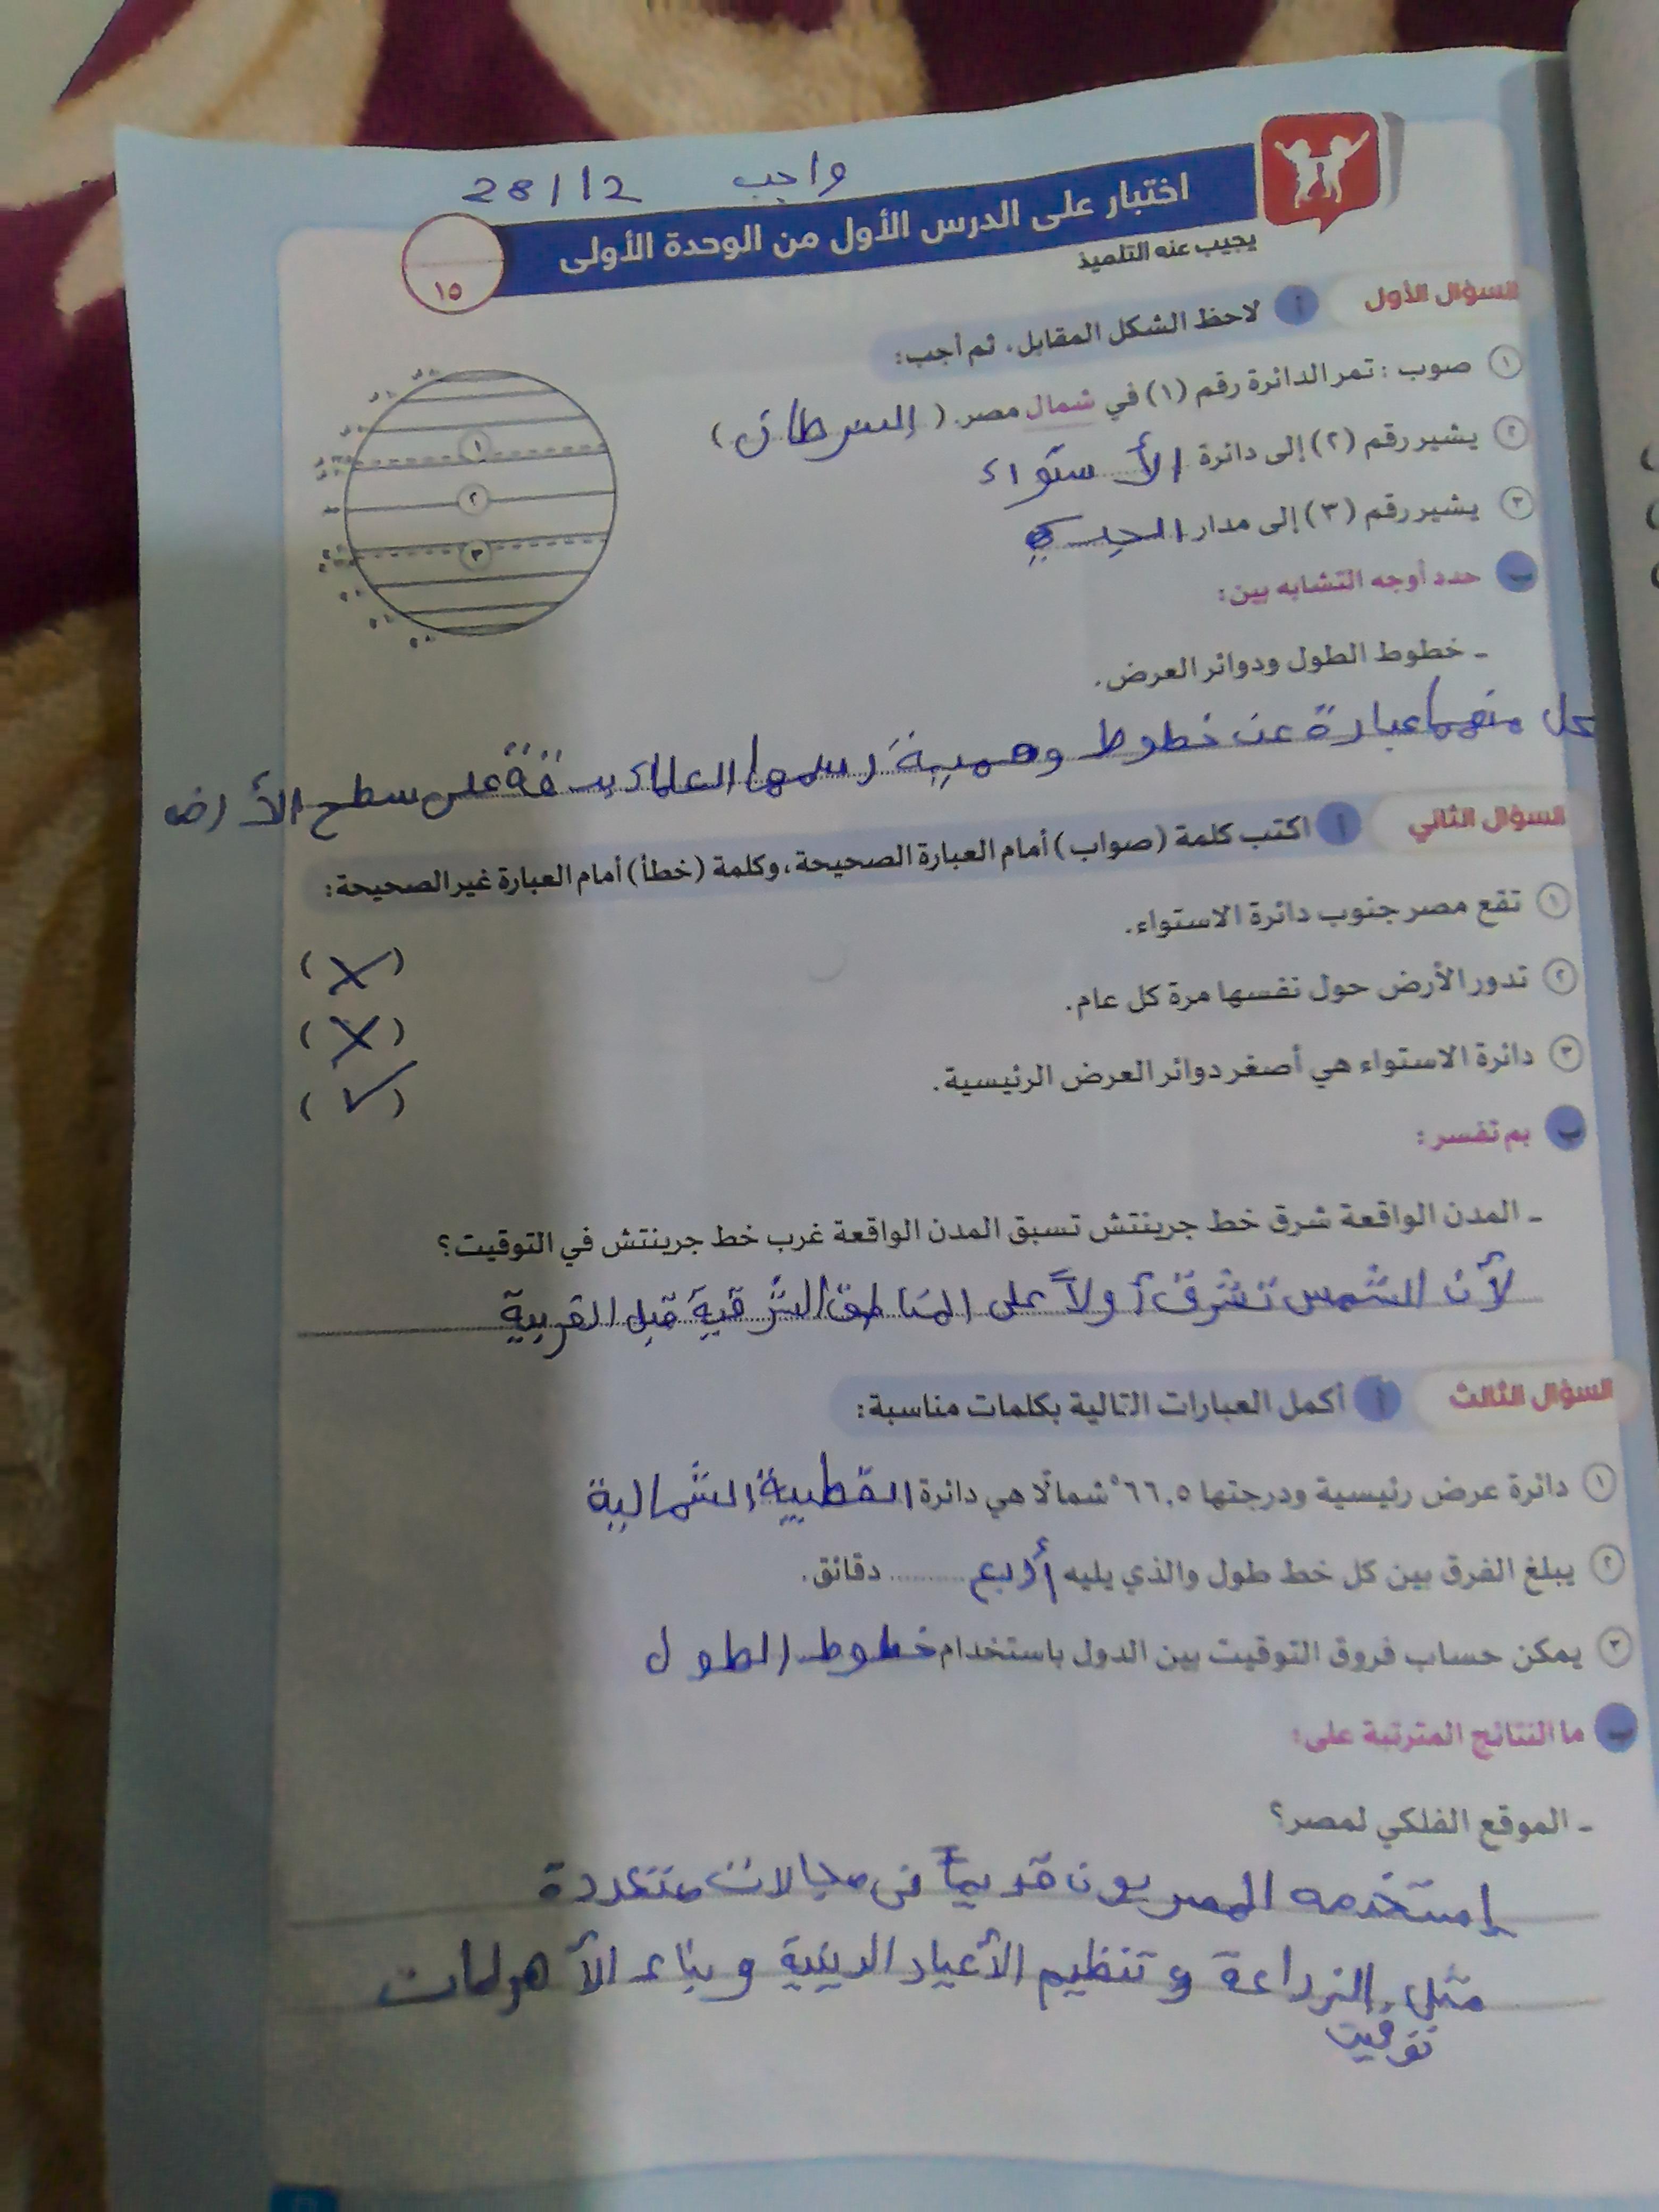 واجب 28/12
اختبار على الدرس الأول من الوحدة الأولى
١٥
يجيب عنه التلميذ
السؤال الأول أ لاحظ الشكل المقابل، ثم أجب:
١ صوب : تمر الدائرة رقم (١) في شمال مصر. (السرطان)
٢ يشير رقم (٢) إلى دائرة الأستواء
٣ يشير رقم (٣) إلى مدار الجدي
١
٢
٣
ب حدد أوجه التشابه بين:
- خطوط الطول ودوائر العرض.
كل منهما عبارة عن خطوط وهمية رسمها العلماء بدقة على سطح الأرض
السؤال الثاني أ اكتب كلمة (صواب) أمام العبارة الصحيحة، وكلمة (خطأ) أمام العبارة غير الصحيحة:
١ تقع مصر جنوب دائرة الاستواء. (✗)
٢ تدور الأرض حول نفسها مرة كل عام. (✗)
٣ دائرة الاستواء هي أصغر دوائر العرض الرئيسية. (✓)
ب بم تفسر:
- المدن الواقعة شرق خط جرينتش تسبق المدن الواقعة غرب خط جرينتش في التوقيت؟
لأن الشمس تشرق أولاً على المناطق الشرقية قبل الغربية
السؤال الثالث أ أكمل العبارات التالية بكلمات مناسبة:
١ دائرة عرض رئيسية ودرجتها ٦٦,٥° شمالًا هي دائرة القطبية الشمالية
٢ يبلغ الفرق بين كل خط طول والذي يليه أربع ......... دقائق.
٣ يمكن حساب فروق التوقيت بين الدول باستخدام خطوط الطول
ب ما النتائج المترتبة على:
- الموقع الفلكي لمصر؟
إستخدمه المصريون قديماً في مجالات متعددة
مثل الزراعة و تنظيم الأعياد الدينية وبناء الأهرامات
توقيت